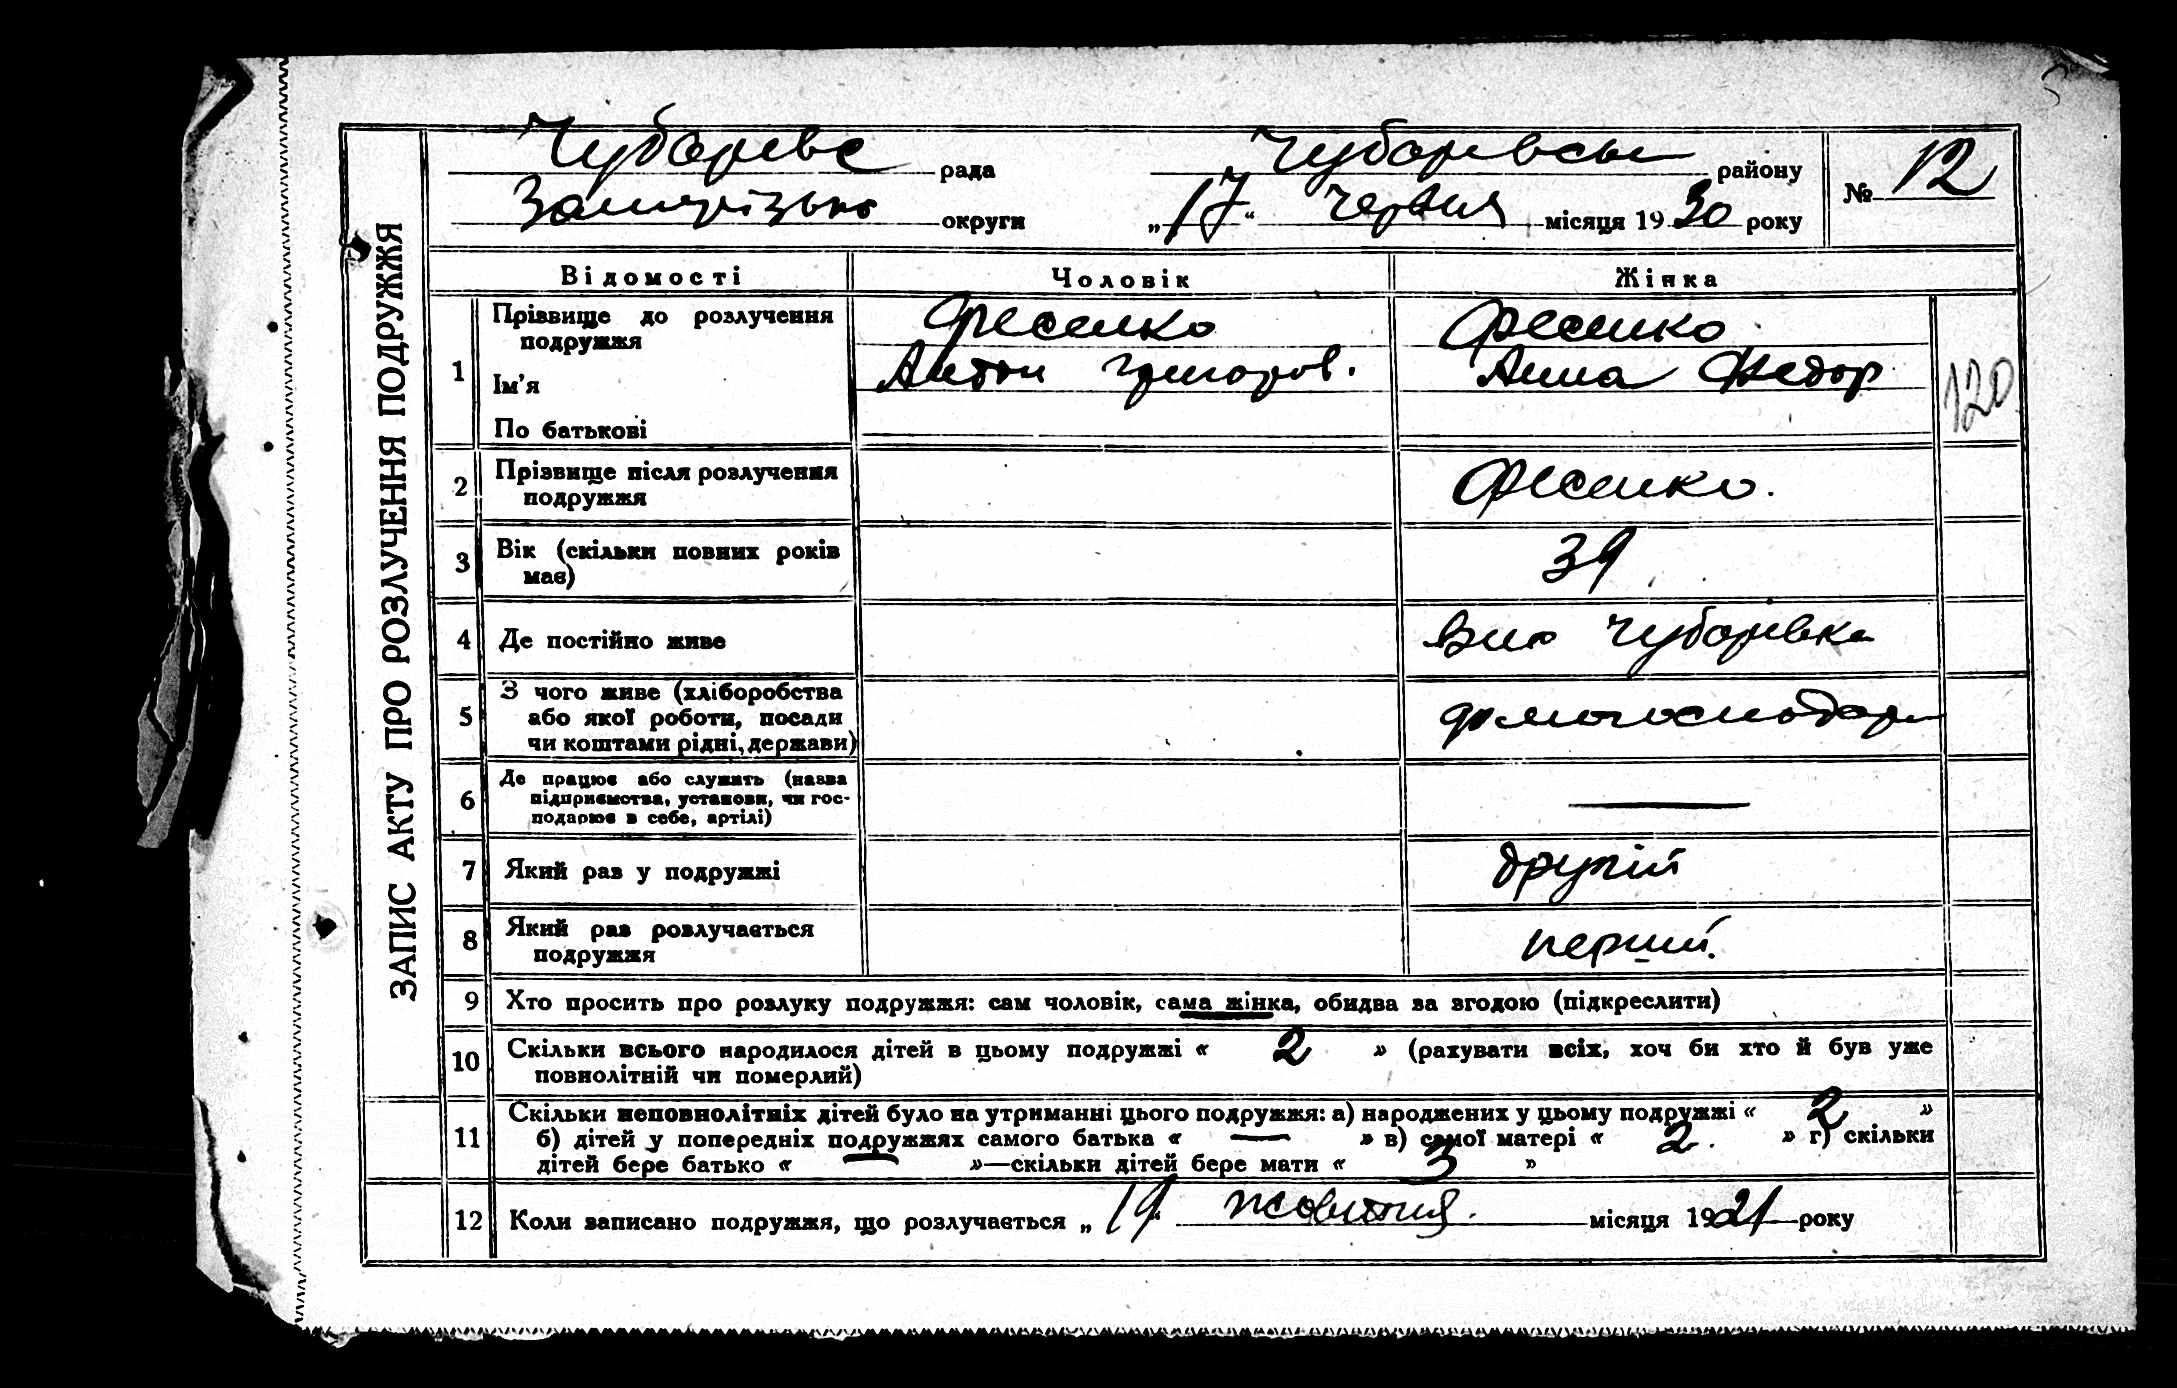 ЗАПИС АКТУ ПРО РОЗЛУЧЕННЯ ПОДРУЖЖЯ
Чубарівс рада Чубарівськ району № 12
Запорізько округи „17“ червня місяця 1930 року
Відомості Чоловік Жінка
1 Прізвище до розлучення подружжя Фесенко Фесенко
Ім'я Антон Григоров. Анна Федор 120
По батькові
2 Прізвище після розлучення подружжя Фесенко.
3 Вік (скільки повних років має) 39
4 Де постійно живе Чубарівка
5 З чого живе (хліборобства або якої роботи, посади чи коштами рідні, держави) домогосподар
6 Де працює або служить (назва підприємства, установи, чи господарює в себе, артілі) —
7 Який раз у подружжі другий
8 Який раз розлучається подружжя перший.
9 Хто просить про розлуку подружжя: сам чоловік, сама жінка, обидва за згодою (підкреслити)
10 Скільки всього народилося дітей в цьому подружжі « 2 » (рахувати всіх, хоч би хто й був уже
повнолітній чи померлий)
11 Скільки неповнолітніх дітей було на утриманні цього подружжя: а) народжених у цьому подружжі « 2 »
б) дітей у попередніх подружжях самого батька « — » в) самої матері « 2. » г) скільки
дітей бере батько « — »—скільки дітей бере мати « 3 »
12 Коли записано подружжя, що розлучається „19“ жовтня. місяця 1921 року